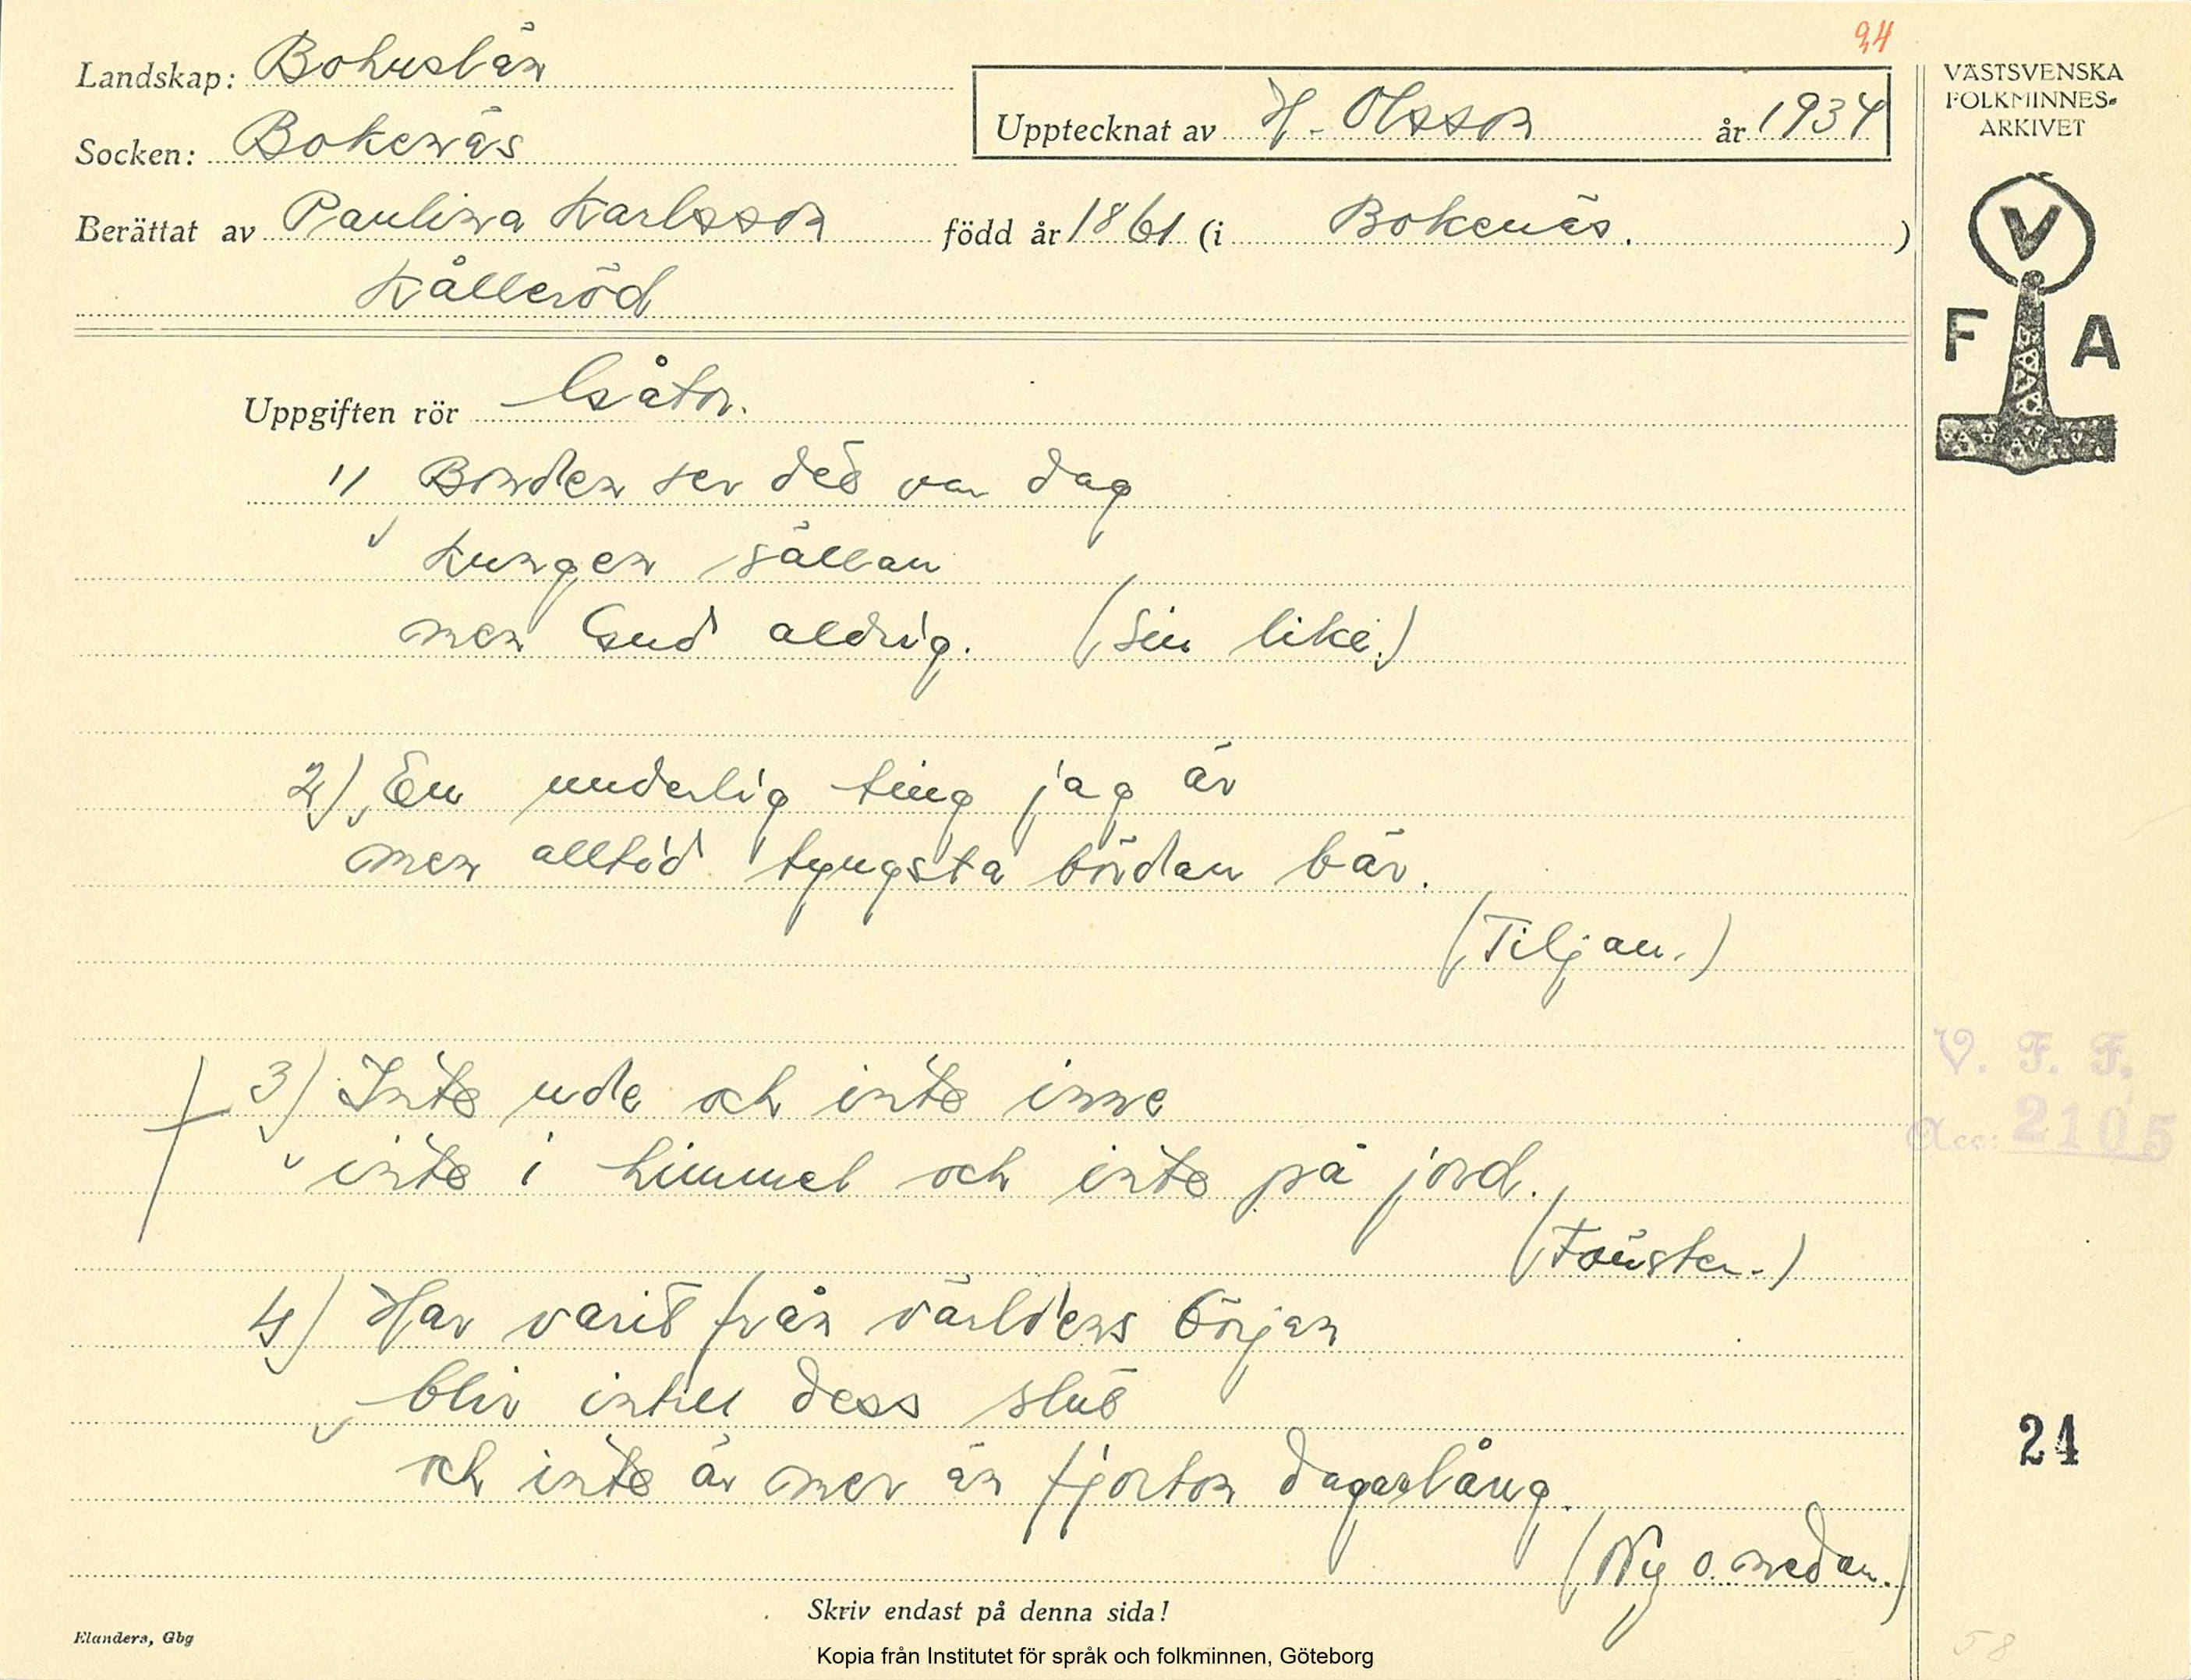 94
Landskap: Bohuslän
Socken: Bokenäs
Upptecknat av H. Olsson år 1934
Berättat av Paulina Karlsson född år 1861 (i Bokenäs.)
Kålleröd
VÄSTSVENSKA
FOLKMINNES-
ARKIVET
V
F A
Uppgiften rör Gåtor.
1) Bonden ser det var dag
kungen sällan
men Gud aldrig. (Sin like.)
2) En underlig ting jag är
men alltid tyngsta bördan bär.
(Tiljan.)
3) Inte ude och inte inne
inte i himmel och inte på jord.
(Fönster.)
V. F. F.
Acc: 2105
4) Har varit från världens början
blir intill dess slut
och inte är mer än fjorton dagarlång.
(Ny o. nedan.)
24
Skriv endast på denna sida!
Elanders, Gbg
58
Kopia från Institutet för språk och folkminnen, Göteborg